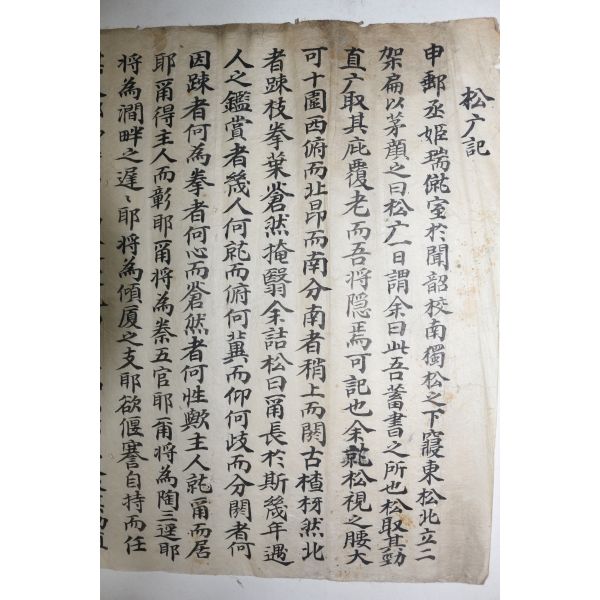 松广記
申郵丞姬瑞僦室於聞韶校南獨松之下寢東松北立二
架扁以茅顔之曰松广一日謂余曰此吾蓄書之所也松取其勁
直广取其庇覆老而吾將隐焉可記也余就松視之腰大
可十圍西俯而北昻而南分南者稍上而闕古楂枒然北
者踈枝拳葉蒼然掩翳余詰松曰甭長於斯幾年遇
人之鑑賞者幾人何就而俯何冀而仰何歧而分闕者何
因踈者何為拳者何心而蒼然者何性歟主人就甭而居
耶甭得主人而彰耶甭將為秦五官耶甭將為陶三逕耶
将為澗畔之遲〻耶将為傾厦之支耶欲偃蹇自持而任